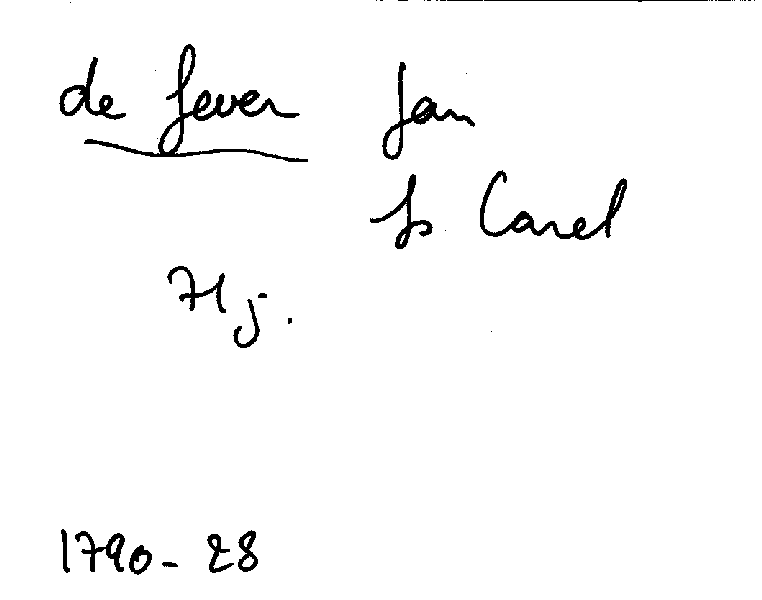 de fever Jan
fs Carel
71 j.
1790 - 28